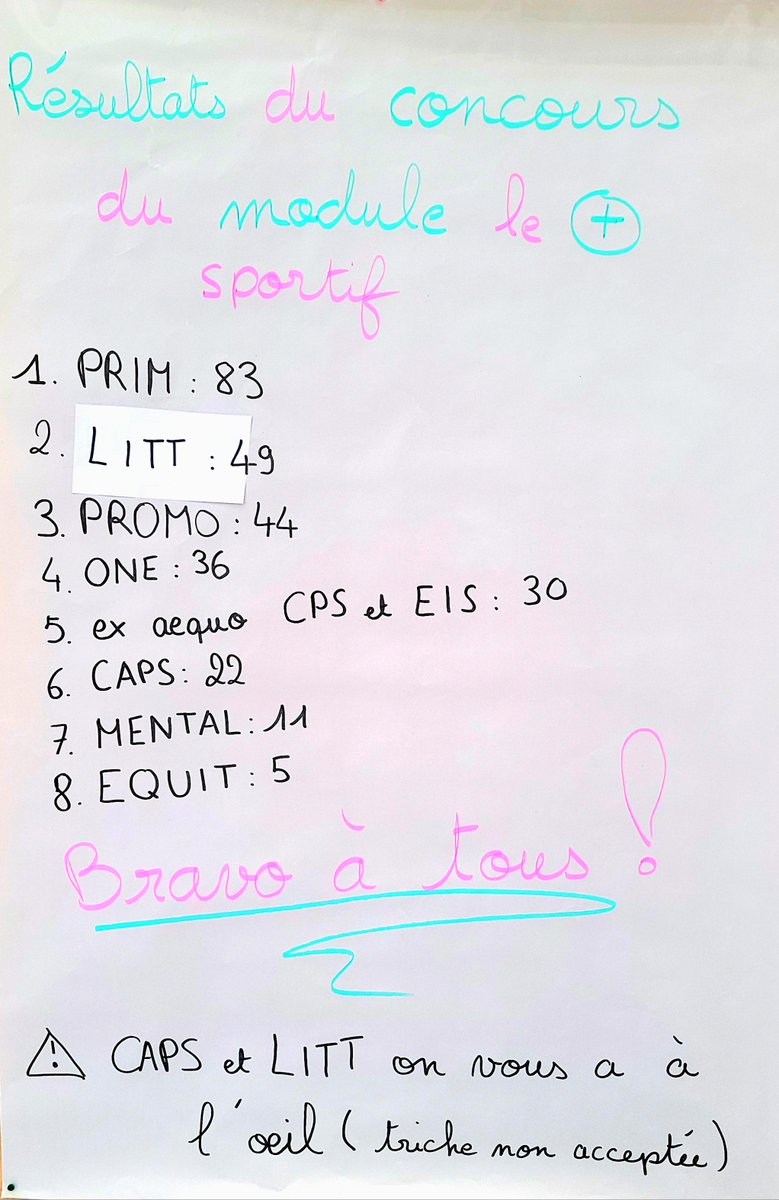 Résultats du concours
du module le +
sportif
1. PRIM : 83
2. LITT : 49
3. PROMO : 44
4. ONE : 36
5. ex aequo CPS et EIS : 30
6. CAPS : 22
7. MENTAL : 11
8. EQUIT : 5
Bravo à tous !
⚠ CAPS et LITT on vous a à
l'oeil ( triche non acceptée)